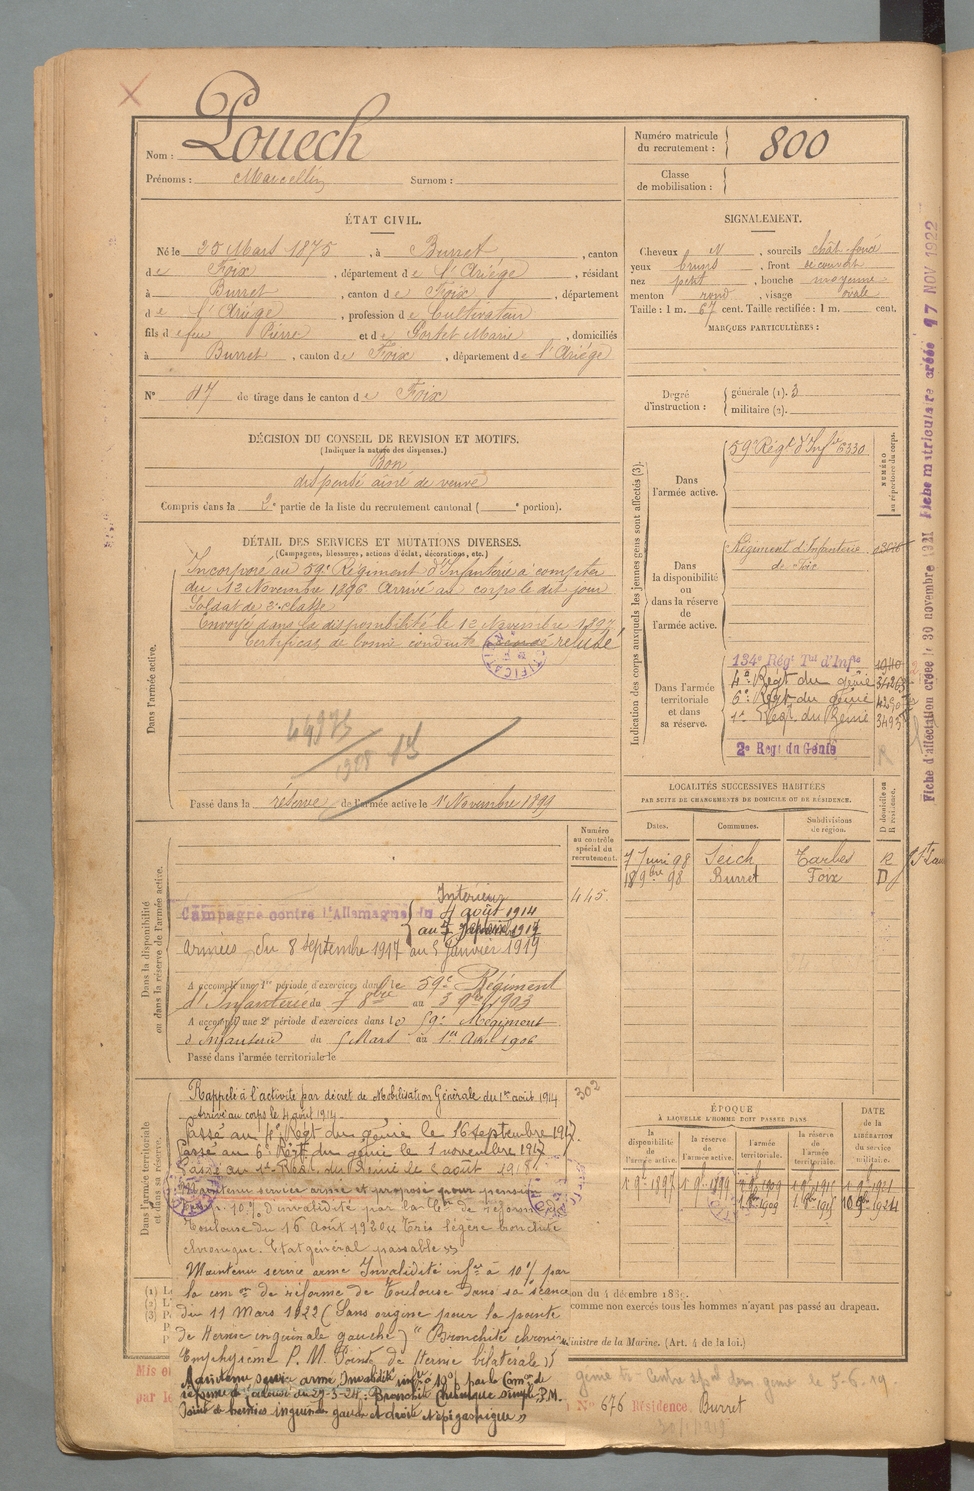 Nom : Pouech
Prénoms : Marcellin Surnom :
Numéro matricule du recrutement : 800
Classe de mobilisation :
ÉTAT CIVIL.
Né le 25 Mars 1875, à Burret, canton
de Foix, département de l'Ariège, résidant
à Burret, canton de Foix, département
d l'Ariège, profession de Cultivateur
fils de feu Pierre et de Portet Marie, domiciliés
à Burret, canton de Foix, département de l'Ariège
N° 47 de tirage dans le canton de Foix
SIGNALEMENT.
Cheveux N, sourcils chât. foncé
yeux bruns, front découvert
nez petit, bouche moyenne
menton rond, visage ovale
Taille : 1 m. 67 cent. Taille rectifiée : 1 m. cent.
MARQUES PARTICULIÈRES :
Degré d'instruction : générale (1). 3
militaire (2).
DÉCISION DU CONSEIL DE REVISION ET MOTIFS.
(Indiquer la nature des dispenses.)
Bon
dispensé aîné de veuve
Compris dans la 2e partie de la liste du recrutement cantonal ( e portion).
DÉTAIL DES SERVICES ET MUTATIONS DIVERSES.
(Campagnes, blessures, actions d'éclat, décorations, etc.)
Dans l'armée active.
Incorporé au 59e Régiment d'Infanterie à compter
du 12 Novembre 1896. Arrivé au corps le dit jour
Soldat de 2e classe
Envoyé dans la disponibilité le 12 Novembre 1897
Certificat de bonne conduite refusé
1928
Passé dans la réserve de l'armée active le 1er Novembre 1899
Indication des corps auxquels les jeunes gens sont affectés (3).
NUMÉRO au répertoire du corps.
Dans l'armée active.
59e Régt d'Infie 6330
Dans la disponibilité ou dans la réserve de l'armée active.
Régiment d'Infanterie
de Foix
Dans l'armée territoriale et dans sa réserve.
134e Régt Tal d'Infie
4e Régt du génie
6e Régt du génie
1er Régt du Génie 3495
2e Régt du Génie
LOCALITÉS SUCCESSIVES HABITÉES
PAR SUITE DE CHANGEMENTS DE DOMICILE OU DE RÉSIDENCE.
Dates. Communes. Subdivisions de région. D domicile ou R résidence.
7 Juin 98 Seich Tarbes R
18 9bre 98 Burret Foix D
Dans la disponibilité ou dans la réserve de l'armée active.
Numéro au contrôle spécial du recrutement.
445
Intérieur
Campagne contre l'Allemagne du 4 août 1914
au 7 Septembre 1917
Armées du 8 septembre 1917 au 5 janvier 1919
A accompli une 1re période d'exercices dans le 59e Régiment
d'Infanterie du 7 8bre au 3 9bre 1903
A accompli une 2e période d'exercices dans le 59e Régiment
d'Infanterie du 5 Mars au 1er Avril 1906
Passé dans l'armée territoriale le
Dans l'armée territoriale et dans sa réserve.
302
Rappelé à l'activité par décret de Mobilisation Générale du 1er août 1914
Arrivé au corps le 4 août 1914
Passé au 4e Régt du génie le 16 septembre 1917.
Passé au 6e Régt du génie le 1 novembre 1917
Passé au 1er Régt du Génie le 5 août 1918.
Maintenu service armé et proposé pour pension
10% d'invalidité par la Con de réforme de
Toulouse du 16 Août 1920 « très légère bronchite
chronique. Etat général passable »
Maintenu service armé Invalidité infre à 10% par
la comon de réforme de Toulouse dans sa séance
du 11 Mars 1922 (Sans origine pour la pointe
de Hernie inguinale gauche) " Bronchite chronique
Emphysème P.M. Pointe de Hernie bilatérale »
Maintenu service armé, Invalidité infre 10% par la Comon de
réforme de Toulouse du 29-3-24: Bronchite Chronique simple, P.M.
Point de hernies inguinale gauche et droite et épigastrique »
ÉPOQUE
À LAQUELLE L'HOMME DOIT PASSER DANS
la disponibilité de l'armée active. la réserve de l'armée active. l'armée territoriale. la réserve de l'armée territoriale.
DATE de la LIBÉRATION du service militaire.
1 9e 1897 1 9e 1899
on du 4 décembre 1889.
comme non exercés tous les hommes n'ayant pas passé au drapeau.
Ministre de la Marine. (Art. 4 de la loi.)
Mis e
par le
N° 676 Résidence Burret
30/1/1919
Fiche d'affectation créée le 30 novembre 1921 Fiche matriculaire créée 17 NOV 1922